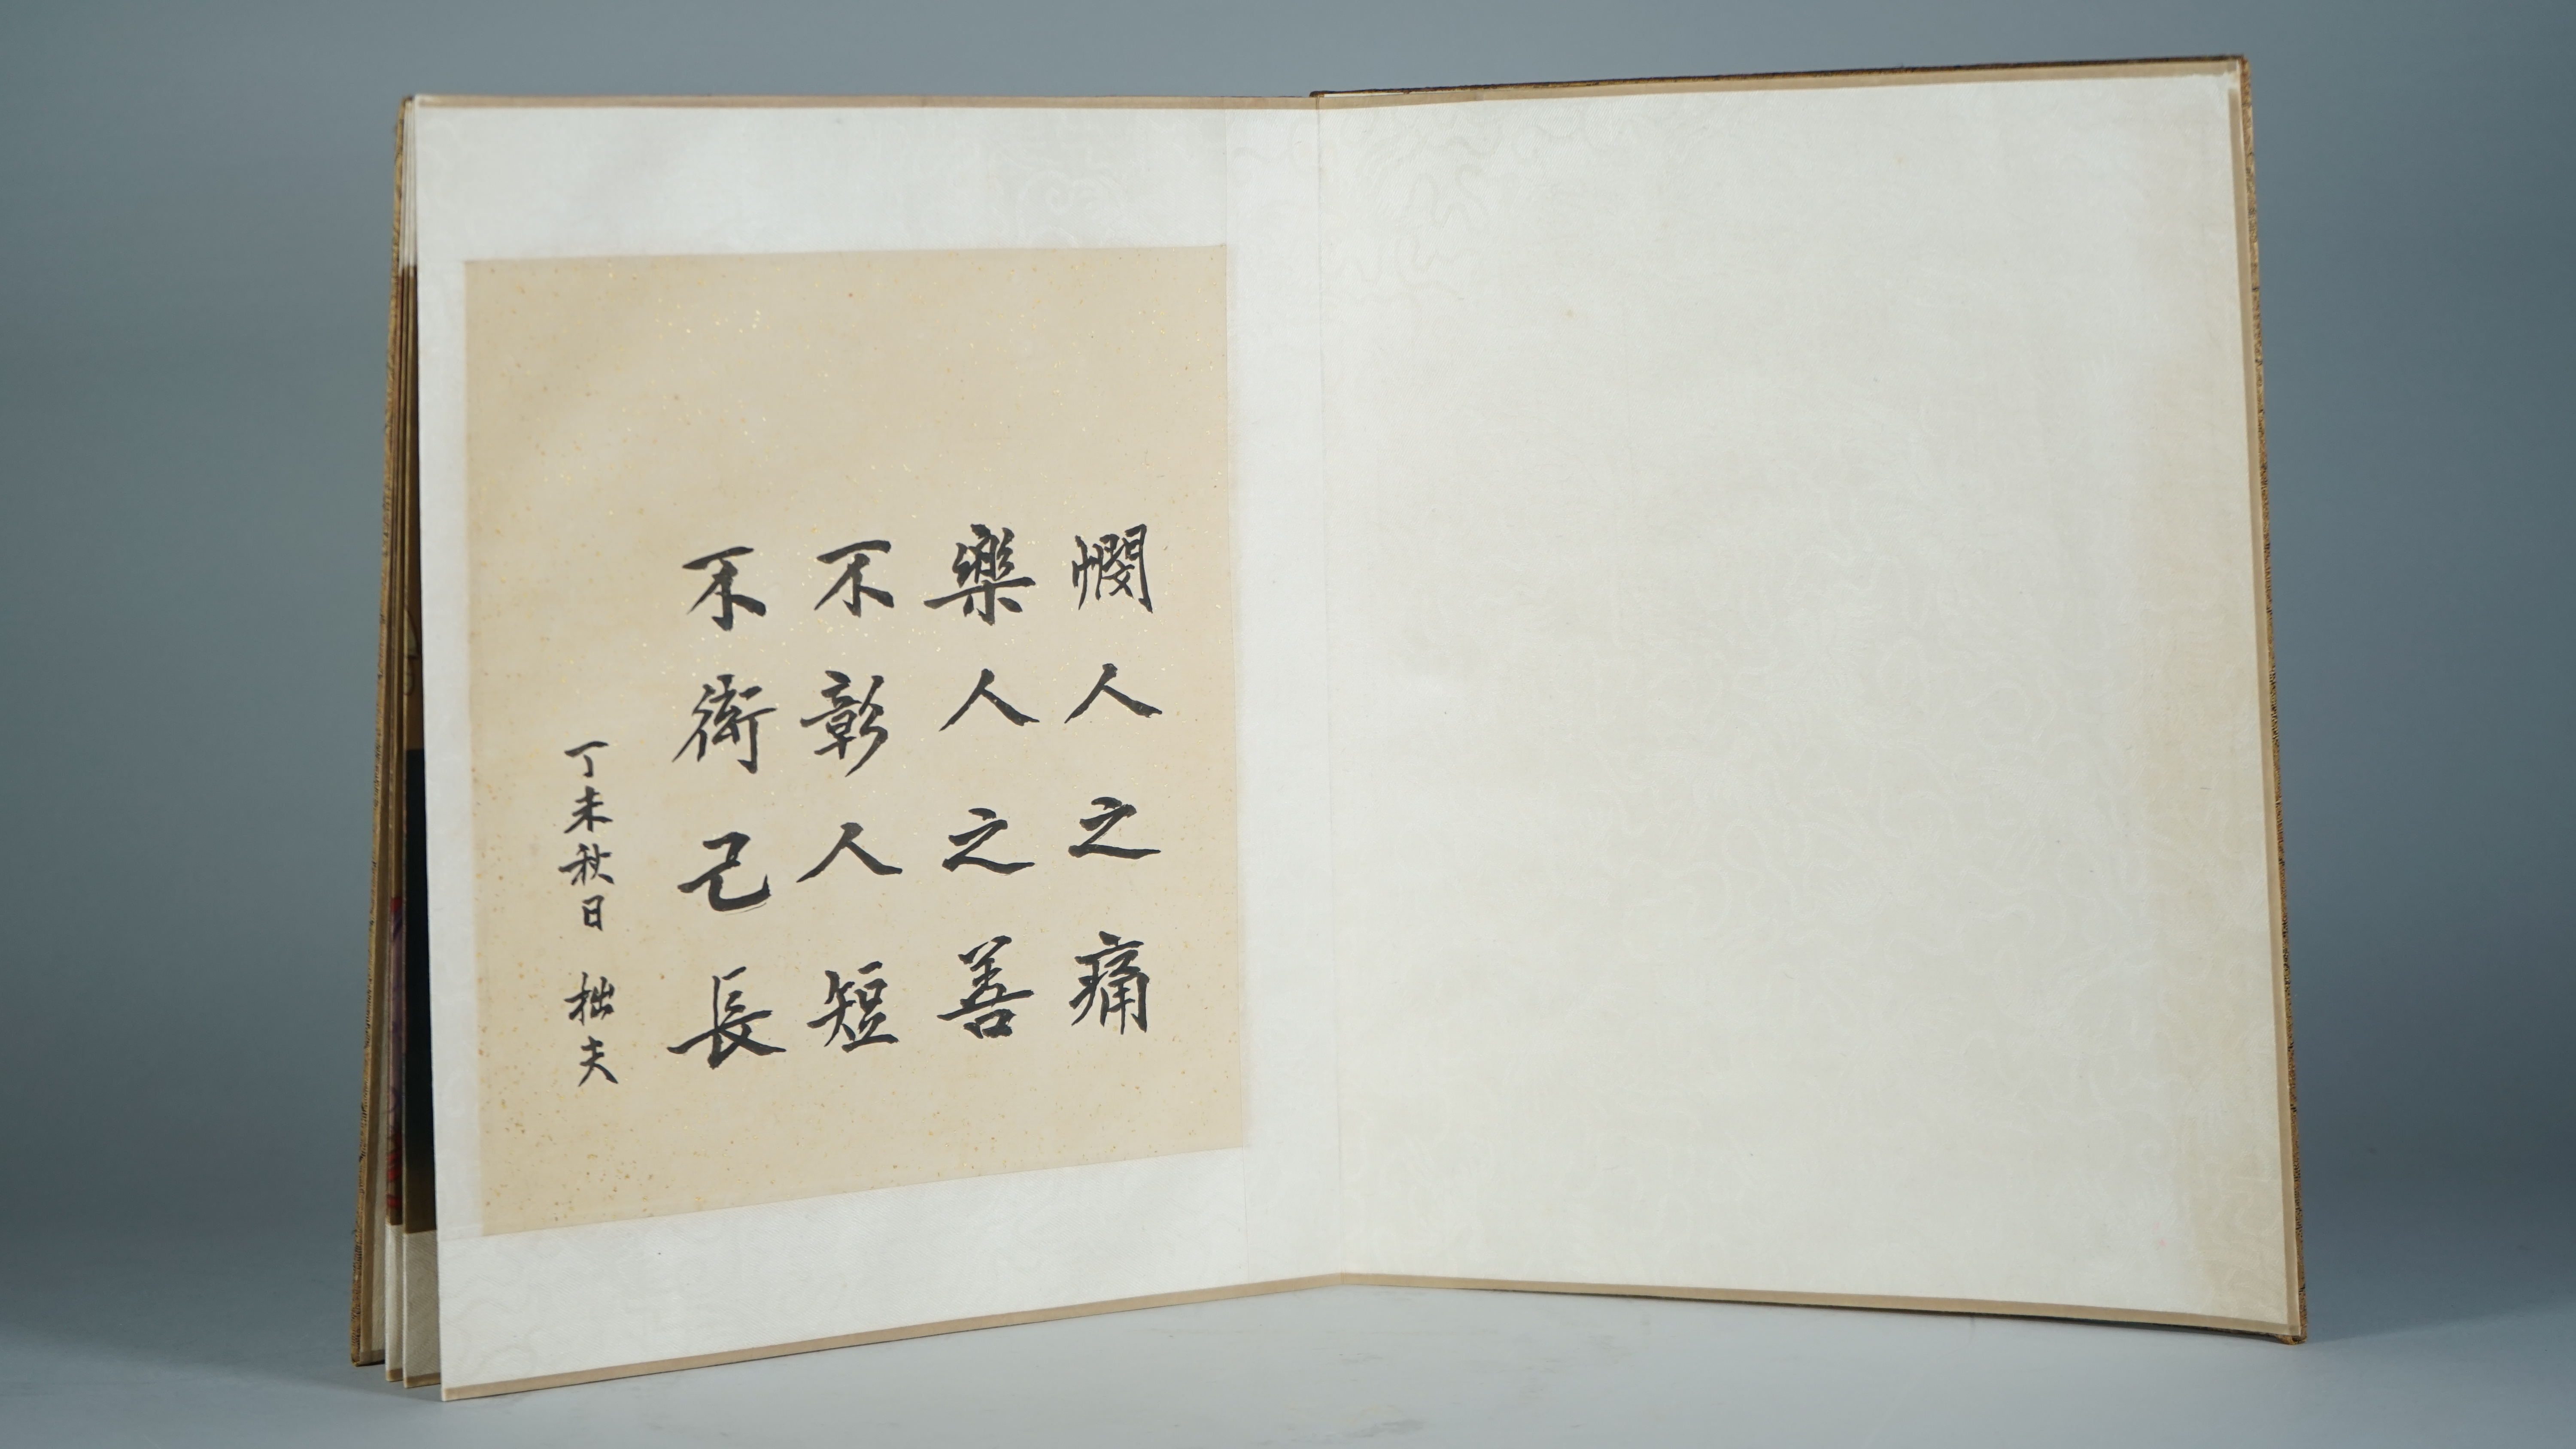 憫人之痛
樂人之善
不彰人短
不衒己長
丁未秋日 拙夫